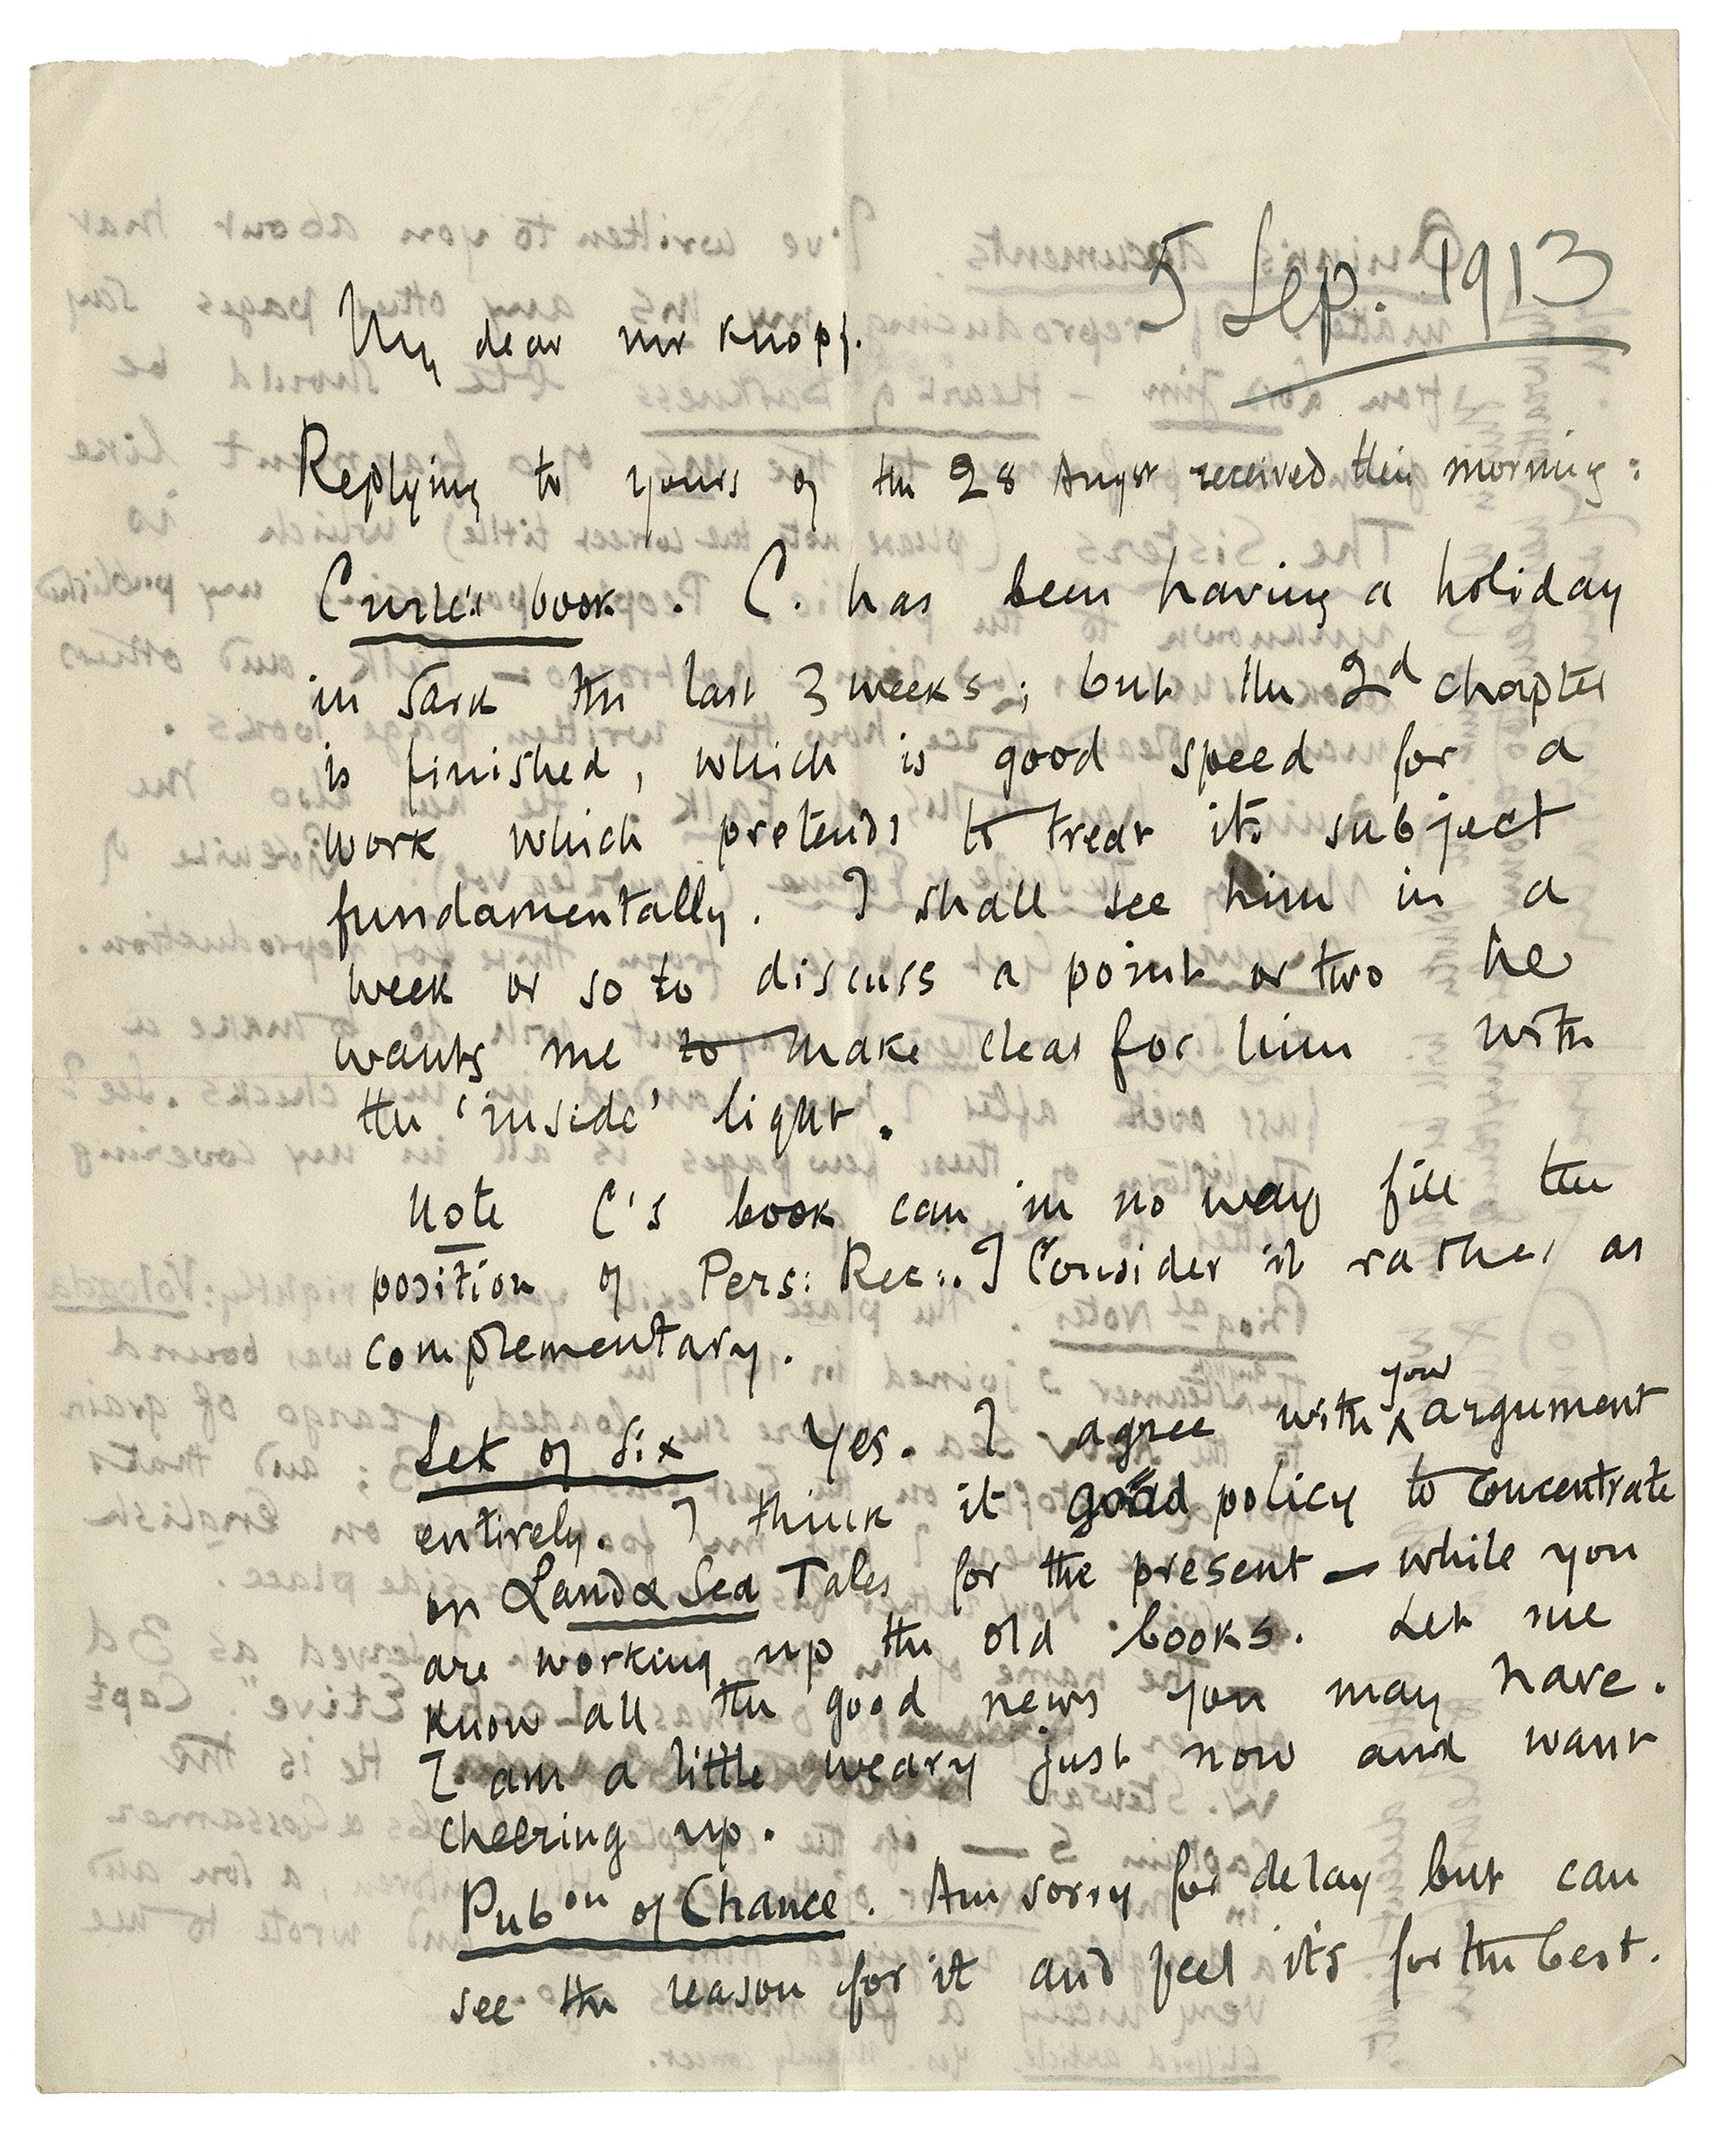 5 Sep. 1913
My dear Mr Knopf.
Replying to yours of the 28 Augst received this morning:
Curle's book. C. has been having a holiday
in Sark the last 3 weeks; but the 2d chapter
is finished, which is good speed for a
work which pretends to treat its subject
fundamentally. I shall see him in a
week or so to discuss a point or two he
wants me to make clear for him with
the 'inside' light.
Note C's book can in no way fill the
position of Pers: Rec:. I Consider it rather as
complementary.
Set of Six Yes. I agree with your argument
entirely. I think it good policy to concentrate
on Land & Sea Tales for the present — while you
are working up the old books. Let me
know all the good news you may have.
I am a little weary just now and want
cheering up.
Pubon of Chance. Am sorry for delay but can
see the reason for it and feel it's for the best.